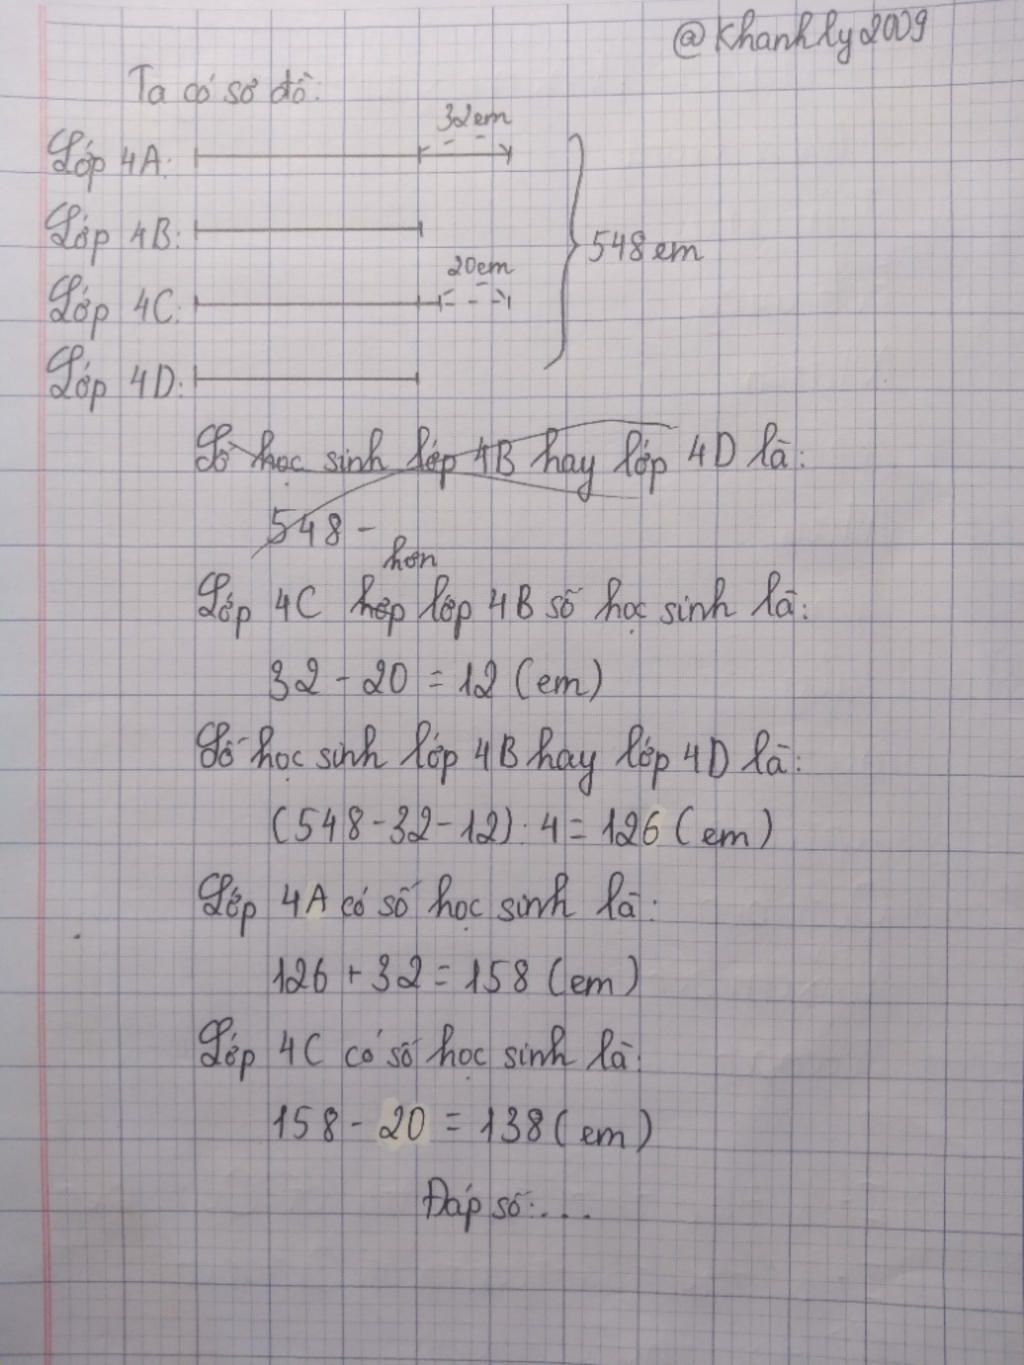 @Khanhly2009
Ta có sơ đồ:
32em
Lớp 4A:
Lớp 4B:
548em
20em
Lớp 4C:
Lớp 4D:
Số học sinh lớp 4B hay lớp 4D là:
548 -
hơn
Lớp 4C hợp lớp 4B số học sinh là:
32 - 20 = 12 (em)
Số học sinh lớp 4B hay lớp 4D là:
(548 - 32 - 12) : 4 = 126 (em)
Lớp 4A có số học sinh là:
126 + 32 = 158 (em)
Lớp 4C có số học sinh là:
158 - 20 = 138 (em)
Đáp số:...